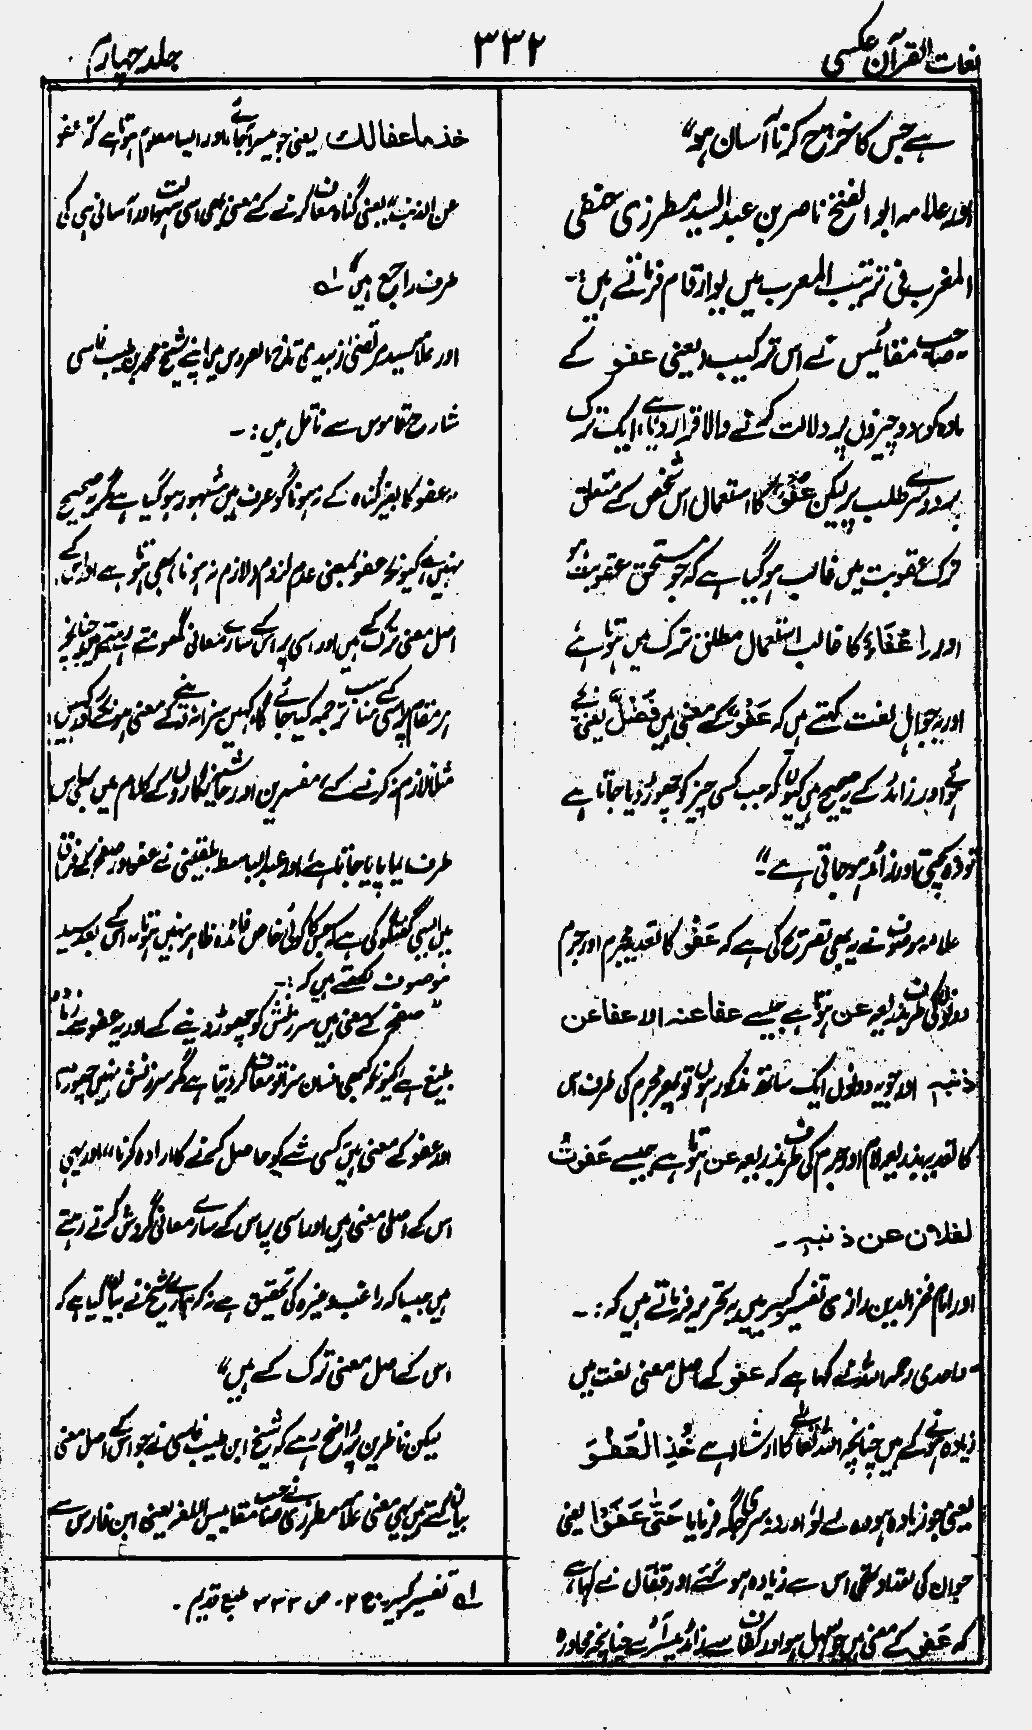 لغات القرآن عکسی
۳۳۲
جلد چہارم
ہے جس کا خرچ کرنا آسان ہو"
اور علامہ ابو الفتح ناصر بن عبد السید مطرزی حنفی
المغرب فی ترتیب المعرب میں یوں ارقام فرماتے ہیں:۔
"صاحب مقائیس نے اس ترکیب یعنی عفو کے
مادہ کو دو چیزوں پر دلالت کرنے والا قرار دیا ہے، ایک ترک
دوسرے طلب پر لیکن عفو کا استعمال اس شخص کے متعلق
ترک عقوبت میں غالب ہو گیا ہے کہ جو مستحق عقوبت ہو
اور اعفاء کا غالب استعمال مطلق ترک میں ہوتا ہے
اور یہ جو اہل لغت کہتے ہیں کہ عَفْو کے معنی ہیں فَضَلَ یعنی بچے
ہوئے اور زائد کے یہ صحیح ہی کیونکہ جب کسی چیز کو چھوڑ دیا جاتا ہے
تو وہ بچتی اور زائد ہو جاتی ہے۔"
علامہ موصوف نے یہ بھی تصریح کی ہے کہ عَفْو کا تعدیہ مجرم اور جرم
دونوں کی طرف بذریعہ عن ہوتا ہے جیسے عفا عنہ الا عفا عن
ذنبہ اور جب یہ دونوں ایک ساتھ مذکور ہوں تو پھر مجرم کی طرف اس
کا تعدیہ بذریعہ لام اور جرم کی طرف بذریعہ عن ہوتا ہے جیسے عَفوتُ
لفلان عن ذنبہ ۔
اور امام فخر الدین رازی تفسیر کبیر میں یہ تحریر فرماتے ہیں کہ:۔
"واحدی رحمہ اللہ نے کہا ہے کہ عفو کے اصل معنی لغت میں
زیادہ ہونے کے ہیں چنانچہ اللہ تعالیٰ کا ارشاد ہے خُذِ الْعَفْوَ
یعنی جو زیادہ ہو وہ لے لو، اور دوسری جگہ فرمایا حَتّٰی عَفَوْا یعنی
جو ان کی تعداد تھی اس سے زیادہ ہو گئے اور قفال نے کہا ہے
کہ عَفو کے معنی ہیں جو سہل ہو اور کفاف سے زائد میسر آئے چنانچہ محاورہ
خذ ما عفا لک یعنی جو میسر آجائے اور ایسا معلوم ہوتا ہے کہ عفو
عن الذنب یعنی گناہ معاف کرنے کے معنی بھی اسی سہولت اور آسانی ہی کی
طرف راجع ہیں" لہ
اور علامہ سید مرتضیٰ زبیدی تاج العروس میں اپنے شیخ محمد بن طیب فاسی
شارح قاموس سے ناقل ہیں:۔
"عفو کا بغیر گناہ کے نہ ہونا گو عرف میں مشہور ہو گیا ہے مگر یہ صحیح
نہیں ہے کیونکہ عفو بمعنی عدم لزوم (لازم نہ ہونا) بھی ہوتا ہے اور اس کے
اصل معنی ترک کے ہیں اور اسی پر اس کے سارے معانی گھومتے رہتے ہیں چنانچہ
ہر مقام پر اسی کے مناسب ترجمہ کیا جائے گا، کہیں سزا نہ دینے کے معنی ہونگے اور کہیں
مثلاً لازم نہ کرنے کے، مفسرین اور حاشیہ نگاروں کے کلام میں بھی اس
طرف ایما پایا جاتا ہے، اور عبد الباسط بلقینی نے عفو اور صفح کے فرق
میں ایسی گفتگو کی ہے کہ جس کا کوئی خاص فائدہ ظاہر نہیں ہوتا، اس کے بعد سید
موصوف لکھتے ہیں کہ:۔
"صفح کے معنی ہیں سرزنش کو چھوڑ دینے کے اور یہ عفو سے زیادہ
بلیغ ہے کیونکہ کبھی انسان سزا تو معاف کر دیتا ہے مگر سرزنش نہیں چھوڑتا
اور عفو کے معنی ہیں کسی شے کو حاصل کرنے کا ارادہ کرنا، اور یہی
اس کے اصلی معنی ہیں اور اسی پر اس کے سارے معانی گردش کرتے رہتے
ہیں جیسا کہ راغب وغیرہ کی تحقیق ہے نہ کہ ہمارے شیخ نے بیان کیا ہے کہ
اس کے اصل معنی ترک کے ہیں"
لیکن ناظرین پر واضح رہے کہ شیخ ابن طیب فاسی نے جو اس کے اصل معنی
بیان کئے ہیں یہی معنی علامہ مطرزی نے صاحب مقاییس اللغہ یعنی ابن فارس سے
لہ تفسیر کبیر ج ۲ ص ۳۳۲ طبع قدیم ۔